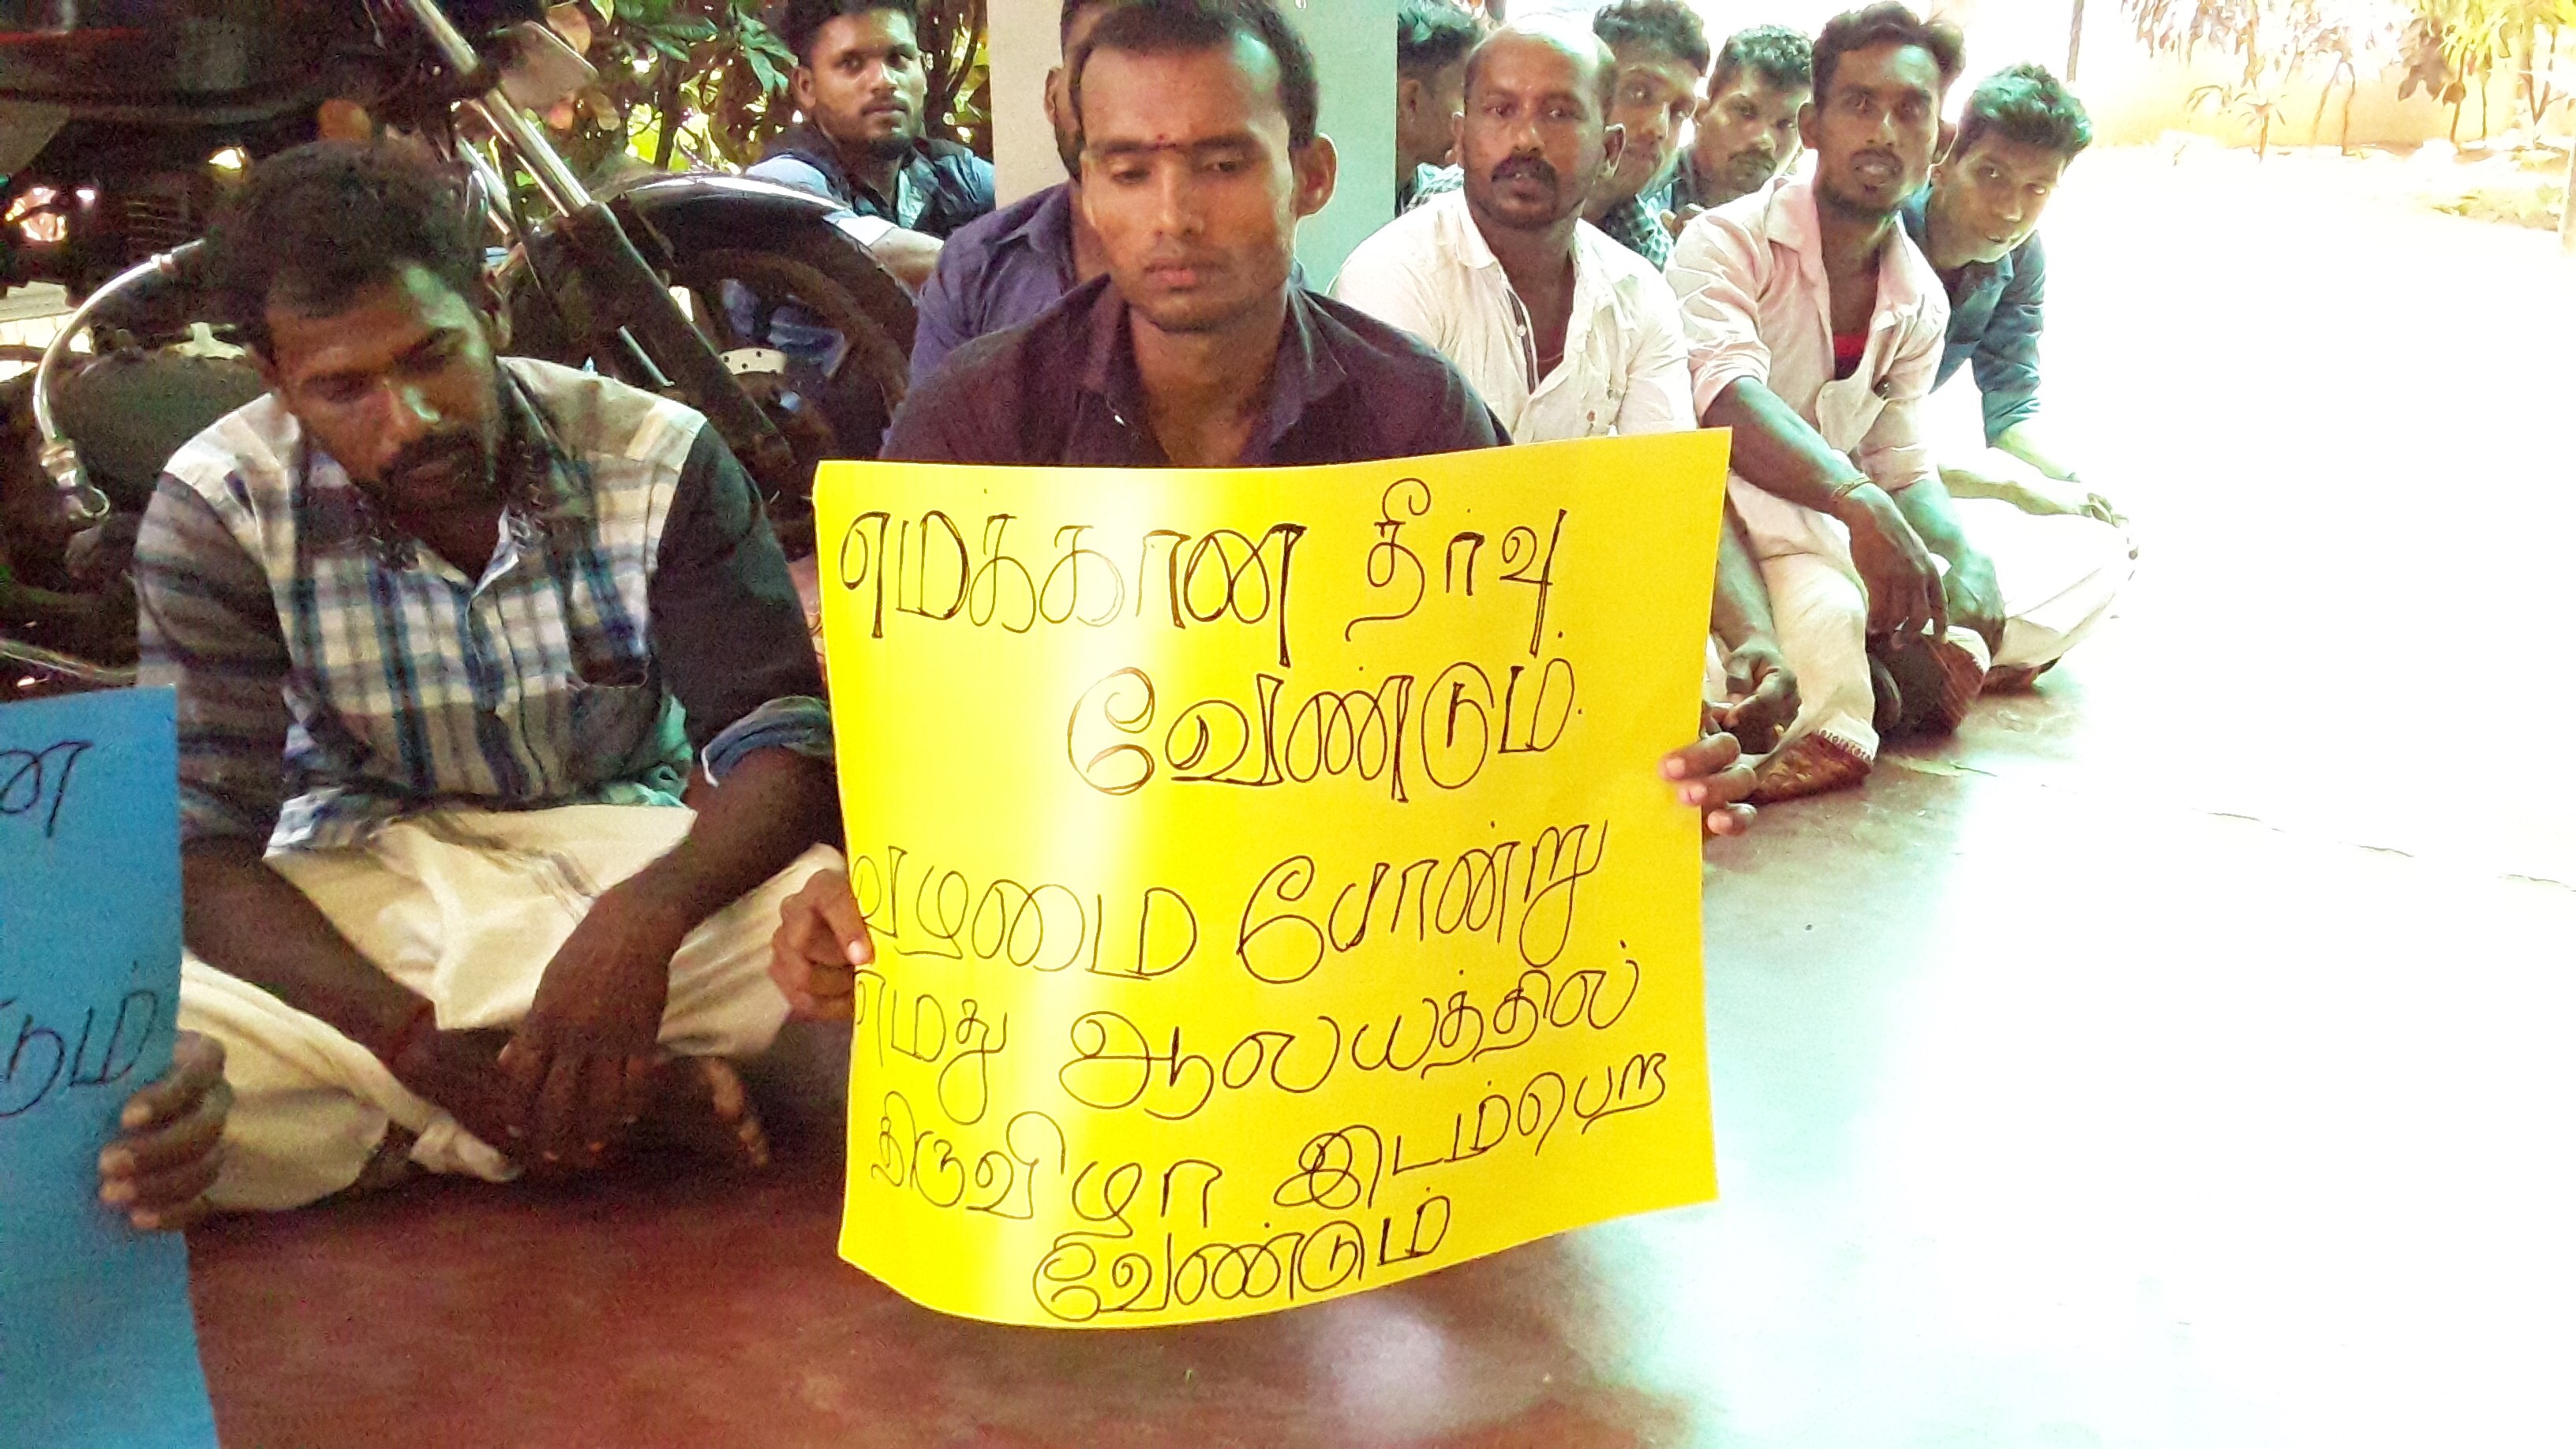 எமக்கான தீர்வு
வேண்டும்.
வழமை போன்று
எமது ஆலயத்தில்
திருவிழா இடம்பெற
வேண்டும்